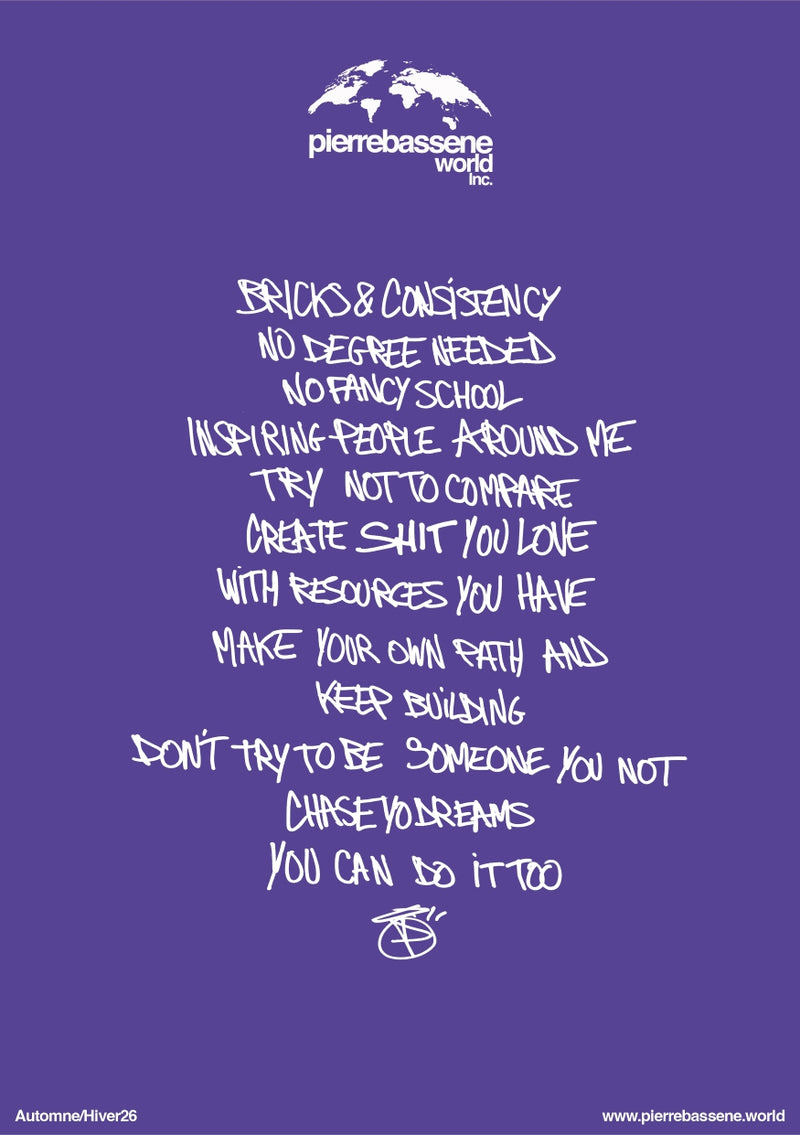 pierrebassene
world
Inc.
BRICKS & CONSISTENCY
NO DEGREE NEEDED
NO FANCY SCHOOL
INSPIRING PEOPLE AROUND ME
TRY NOT TO COMPARE
CREATE SHIT YOU LOVE
WITH RESOURCES YOU HAVE
MAKE YOUR OWN PATH AND
KEEP BUILDING
DON'T TRY TO BE SOMEONE YOU NOT
CHASE YO DREAMS
YOU CAN DO IT TOO
Automne/Hiver26
www.pierrebassene.world